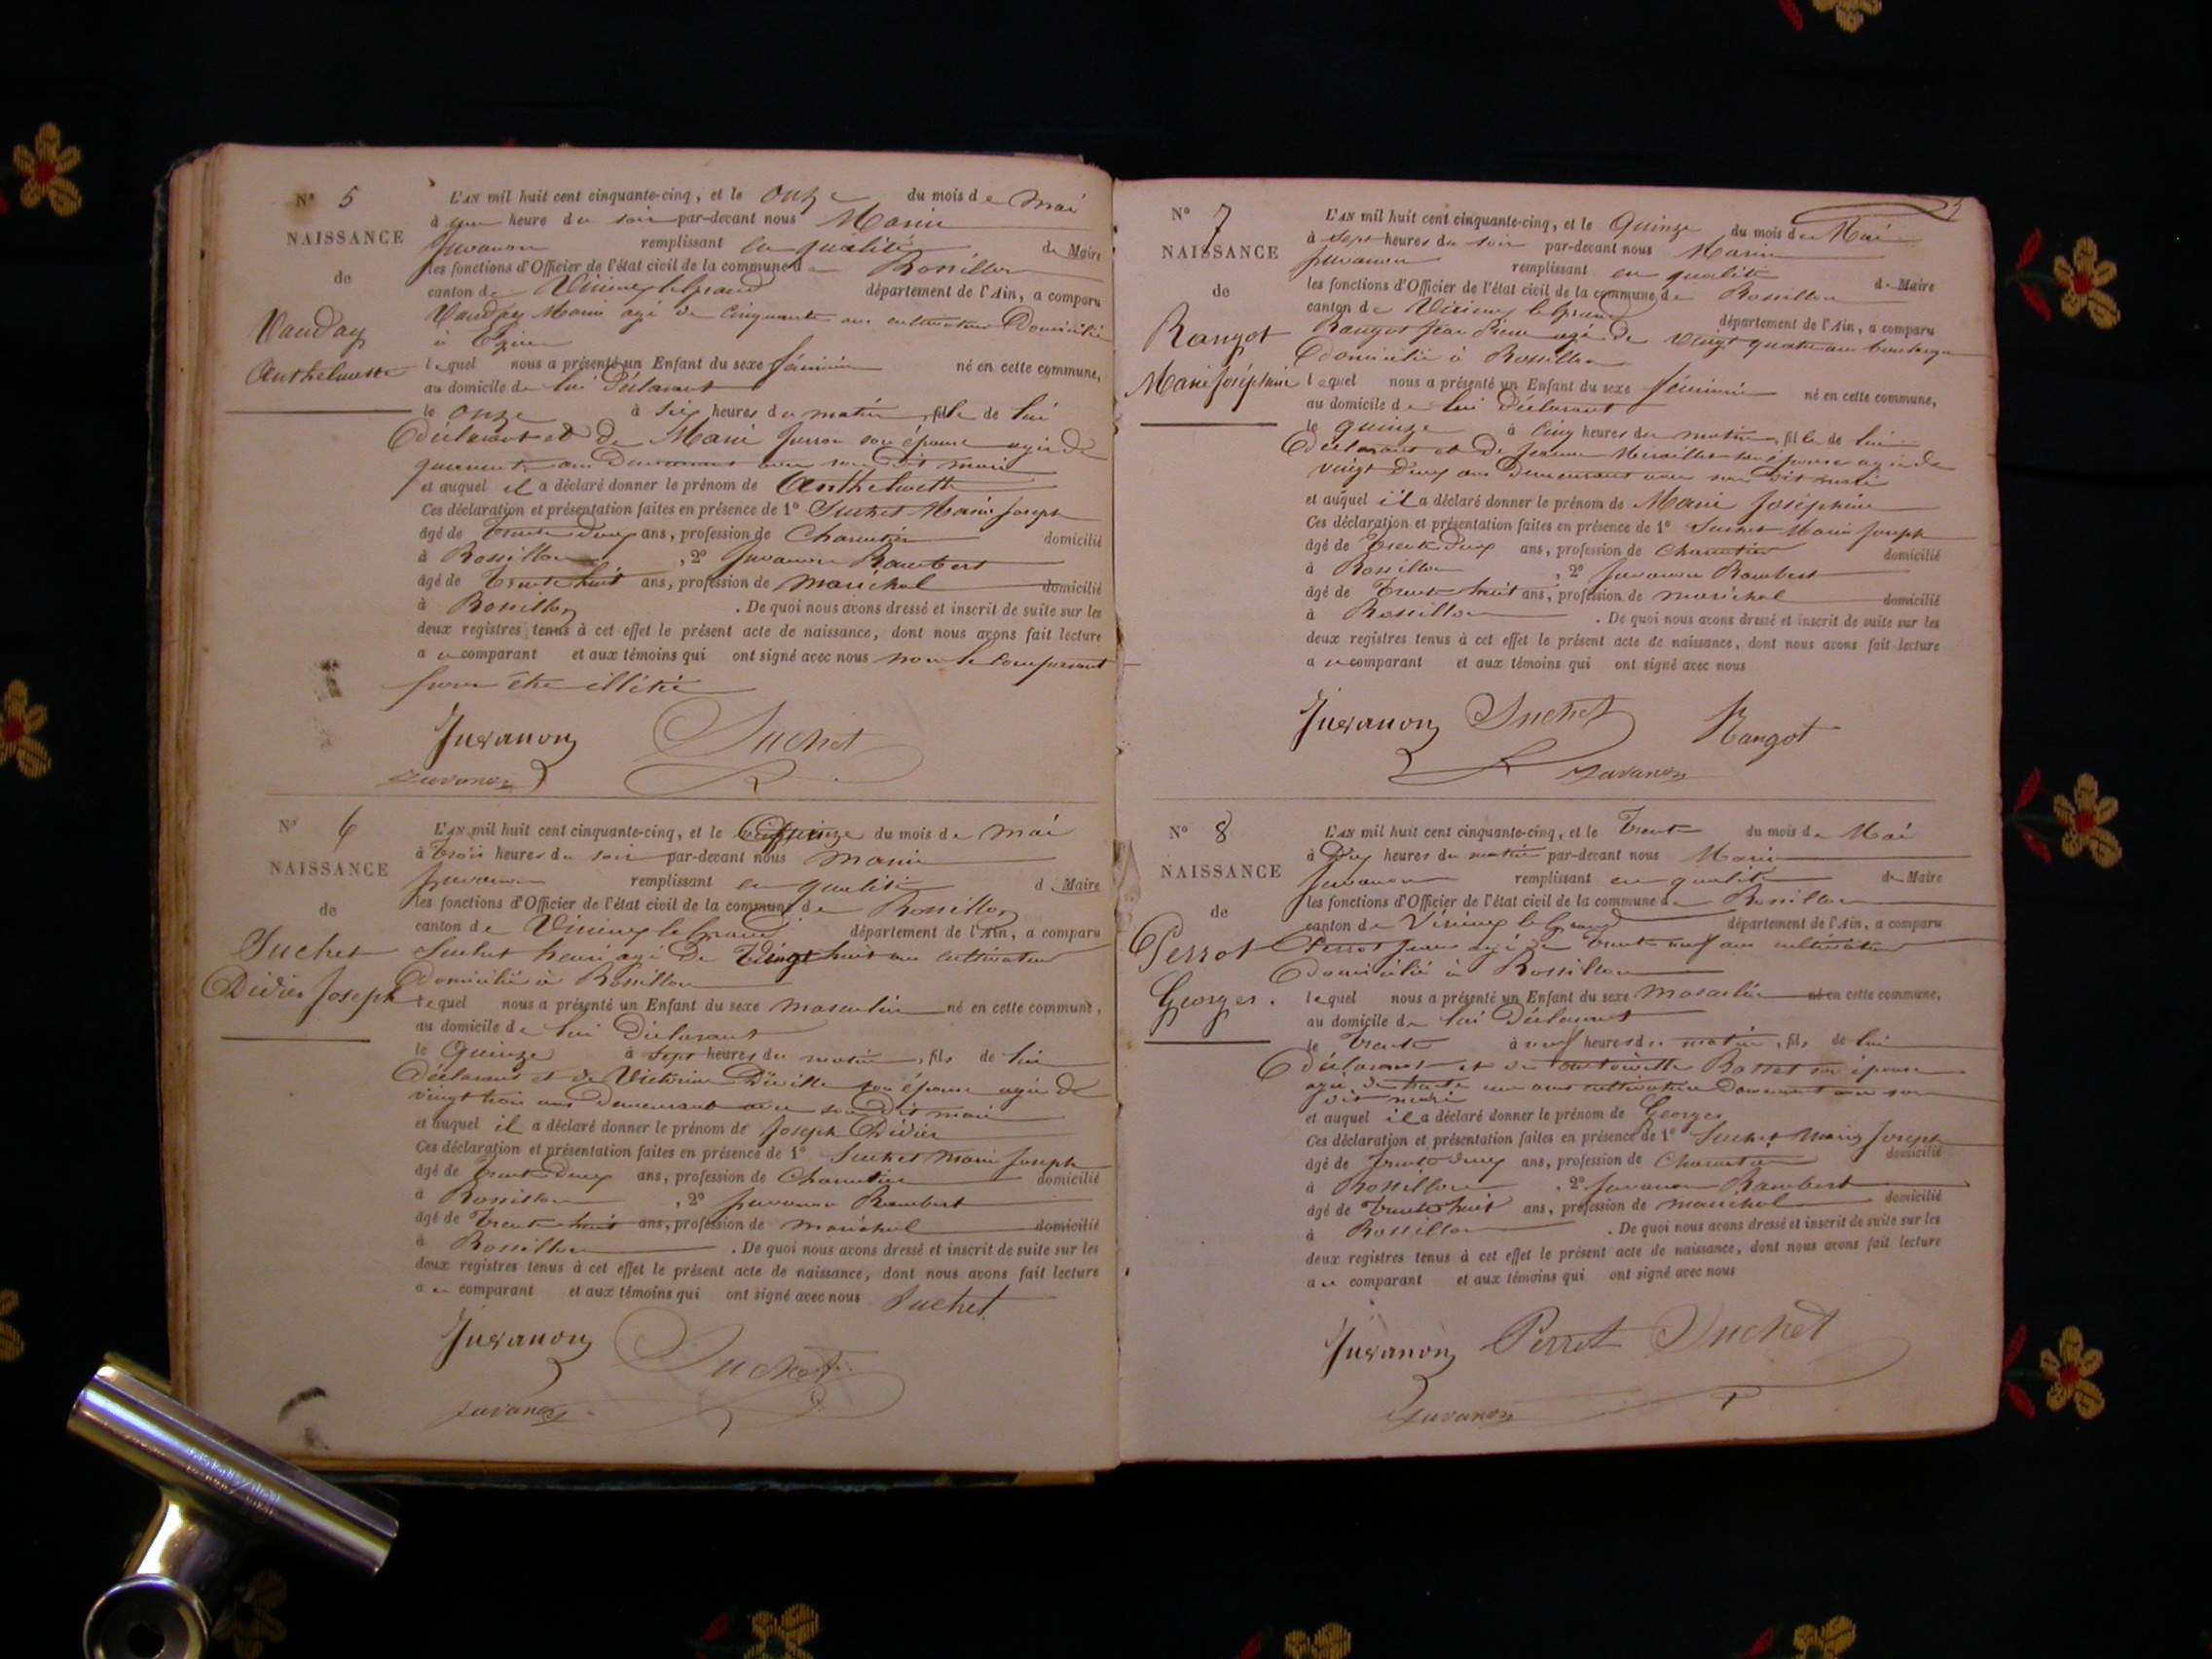 N° 5
NAISSANCE
de
Vauday
Anthelmette
L'AN mil huit cent cinquante-cinq, et le onze du mois de mai
à une heure du soir par-devant nous Marin
Juvanon remplissant en qualité de Maire
les fonctions d'Officier de l'état civil de la commune de Rossillon
canton de Virieux le grand département de l'Ain, a comparu
Vauday Marin agé de Cinquante ans cultivateur Domicilié
à
lequel nous a présenté un Enfant du sexe féminin né en cette commune,
au domicile de lui Déclarant
le onze à six heures du matin, fille de lui
Déclarant et de Marie son épouse agée de
quarante ans Demeurant avec son Dit mari
et auquel il a déclaré donner le prénom de Anthelmette
Ces déclaration et présentation faites en présence de 1° Suchet Marin Joseph
âgé de Trente Deux ans, profession de Charretier domicilié
à Rossillon, 2° Juvanon Rambert
âgé de Trente huit ans, profession de maréchal domicilié
à Rossillon. De quoi nous avons dressé et inscrit de suite sur les
deux registres tenus à cet effet le présent acte de naissance, dont nous avons fait lecture
au comparant et aux témoins qui ont signé avec nous non le comparant
pour être illétré
Juvanon Suchet
Juvanon
N° 6
NAISSANCE
de
Suchet
Didier Joseph
L'AN mil huit cent cinquante-cinq, et le Quinze du mois de mai
à Trois heures du soir par-devant nous Marin
Juvanon remplissant en qualité de Maire
les fonctions d'Officier de l'état civil de la commune de Rossillon
canton de Virieux le grand département de l'Ain, a comparu
Suchet henri agé De Vingt huit ans cultivateur
Domicilié à Rossillon
lequel nous a présenté un Enfant du sexe masculin né en cette commune,
au domicile de lui Déclarant
le Quinze à sept heures du matin, fils de lui
Déclarant et de Victorine son épouse agée de
vingt trois ans Demeurant avec son Dit mari
et auquel il a déclaré donner le prénom de Joseph Didier
Ces déclaration et présentation faites en présence de 1° Suchet Marin Joseph
âgé de Trente Deux ans, profession de Charretier domicilié
à Rossillon, 2° Juvanon Rambert
âgé de Trente huit ans, profession de maréchal domicilié
à Rossillon. De quoi nous avons dressé et inscrit de suite sur les
deux registres tenus à cet effet le présent acte de naissance, dont nous avons fait lecture
au comparant et aux témoins qui ont signé avec nous Suchet
Juvanon Suchet
Juvanon
N° 7
NAISSANCE
de
Rangot
Marie Joséphine
L'AN mil huit cent cinquante-cinq, et le Quinze du mois de Mai
à sept heures du soir par-devant nous Marin
Juvanon remplissant en qualité de Maire
les fonctions d'Officier de l'état civil de la commune de Rossillon
canton de Virieux le grand département de l'Ain, a comparu
Rangot Jean Pierre agé De vingt quatre ans boulanger
Domicilié à Rossillon
lequel nous a présenté un Enfant du sexe féminin né en cette commune,
au domicile de lui Déclarant
le quinze à Cinq heures du matin, fille de lui
Déclarant et De Jeanne son épouse agée de
vingt Deux ans Demeurant avec son Dit mari
et auquel il a déclaré donner le prénom de Marie Joséphine
Ces déclaration et présentation faites en présence de 1° Suchet Marin Joseph
âgé de Trente Deux ans, profession de Charretier domicilié
à Rossillon, 2° Juvanon Rambert
âgé de Trente huit ans, profession de maréchal domicilié
à Rossillon. De quoi nous avons dressé et inscrit de suite sur les
deux registres tenus à cet effet le présent acte de naissance, dont nous avons fait lecture
au comparant et aux témoins qui ont signé avec nous
Juvanon Suchet Rangot
Juvanon
N° 8
NAISSANCE
de
Perrot
Georges.
L'AN mil huit cent cinquante-cinq, et le Trente du mois de Mai
à Dix heures du matin par-devant nous Marin
Juvanon remplissant en qualité de Maire
les fonctions d'Officier de l'état civil de la commune de Rossillon
canton de Virieux le Grand département de l'Ain, a comparu
Perrot agé de Trente neuf ans cultivateur
Domicilié à Rossillon
lequel nous a présenté un Enfant du sexe Masculin né en cette commune,
au domicile de lui Déclarant
le Trente à neuf heures du matin, fils de lui
Déclarant et de Antoinette Basset son épouse
agée de trente ans cultivatrice Demeurant avec son
Dit mari
et auquel il a déclaré donner le prénom de Georges
Ces déclaration et présentation faites en présence de 1° Suchet Marin Joseph
âgé de Trente Deux ans, profession de Charretier domicilié
à Rossillon, 2° Juvanon Rambert
âgé de Trente huit ans, profession de maréchal domicilié
à Rossillon. De quoi nous avons dressé et inscrit de suite sur les
deux registres tenus à cet effet le présent acte de naissance, dont nous avons fait lecture
au comparant et aux témoins qui ont signé avec nous
Juvanon Perrot Suchet
Juvanon